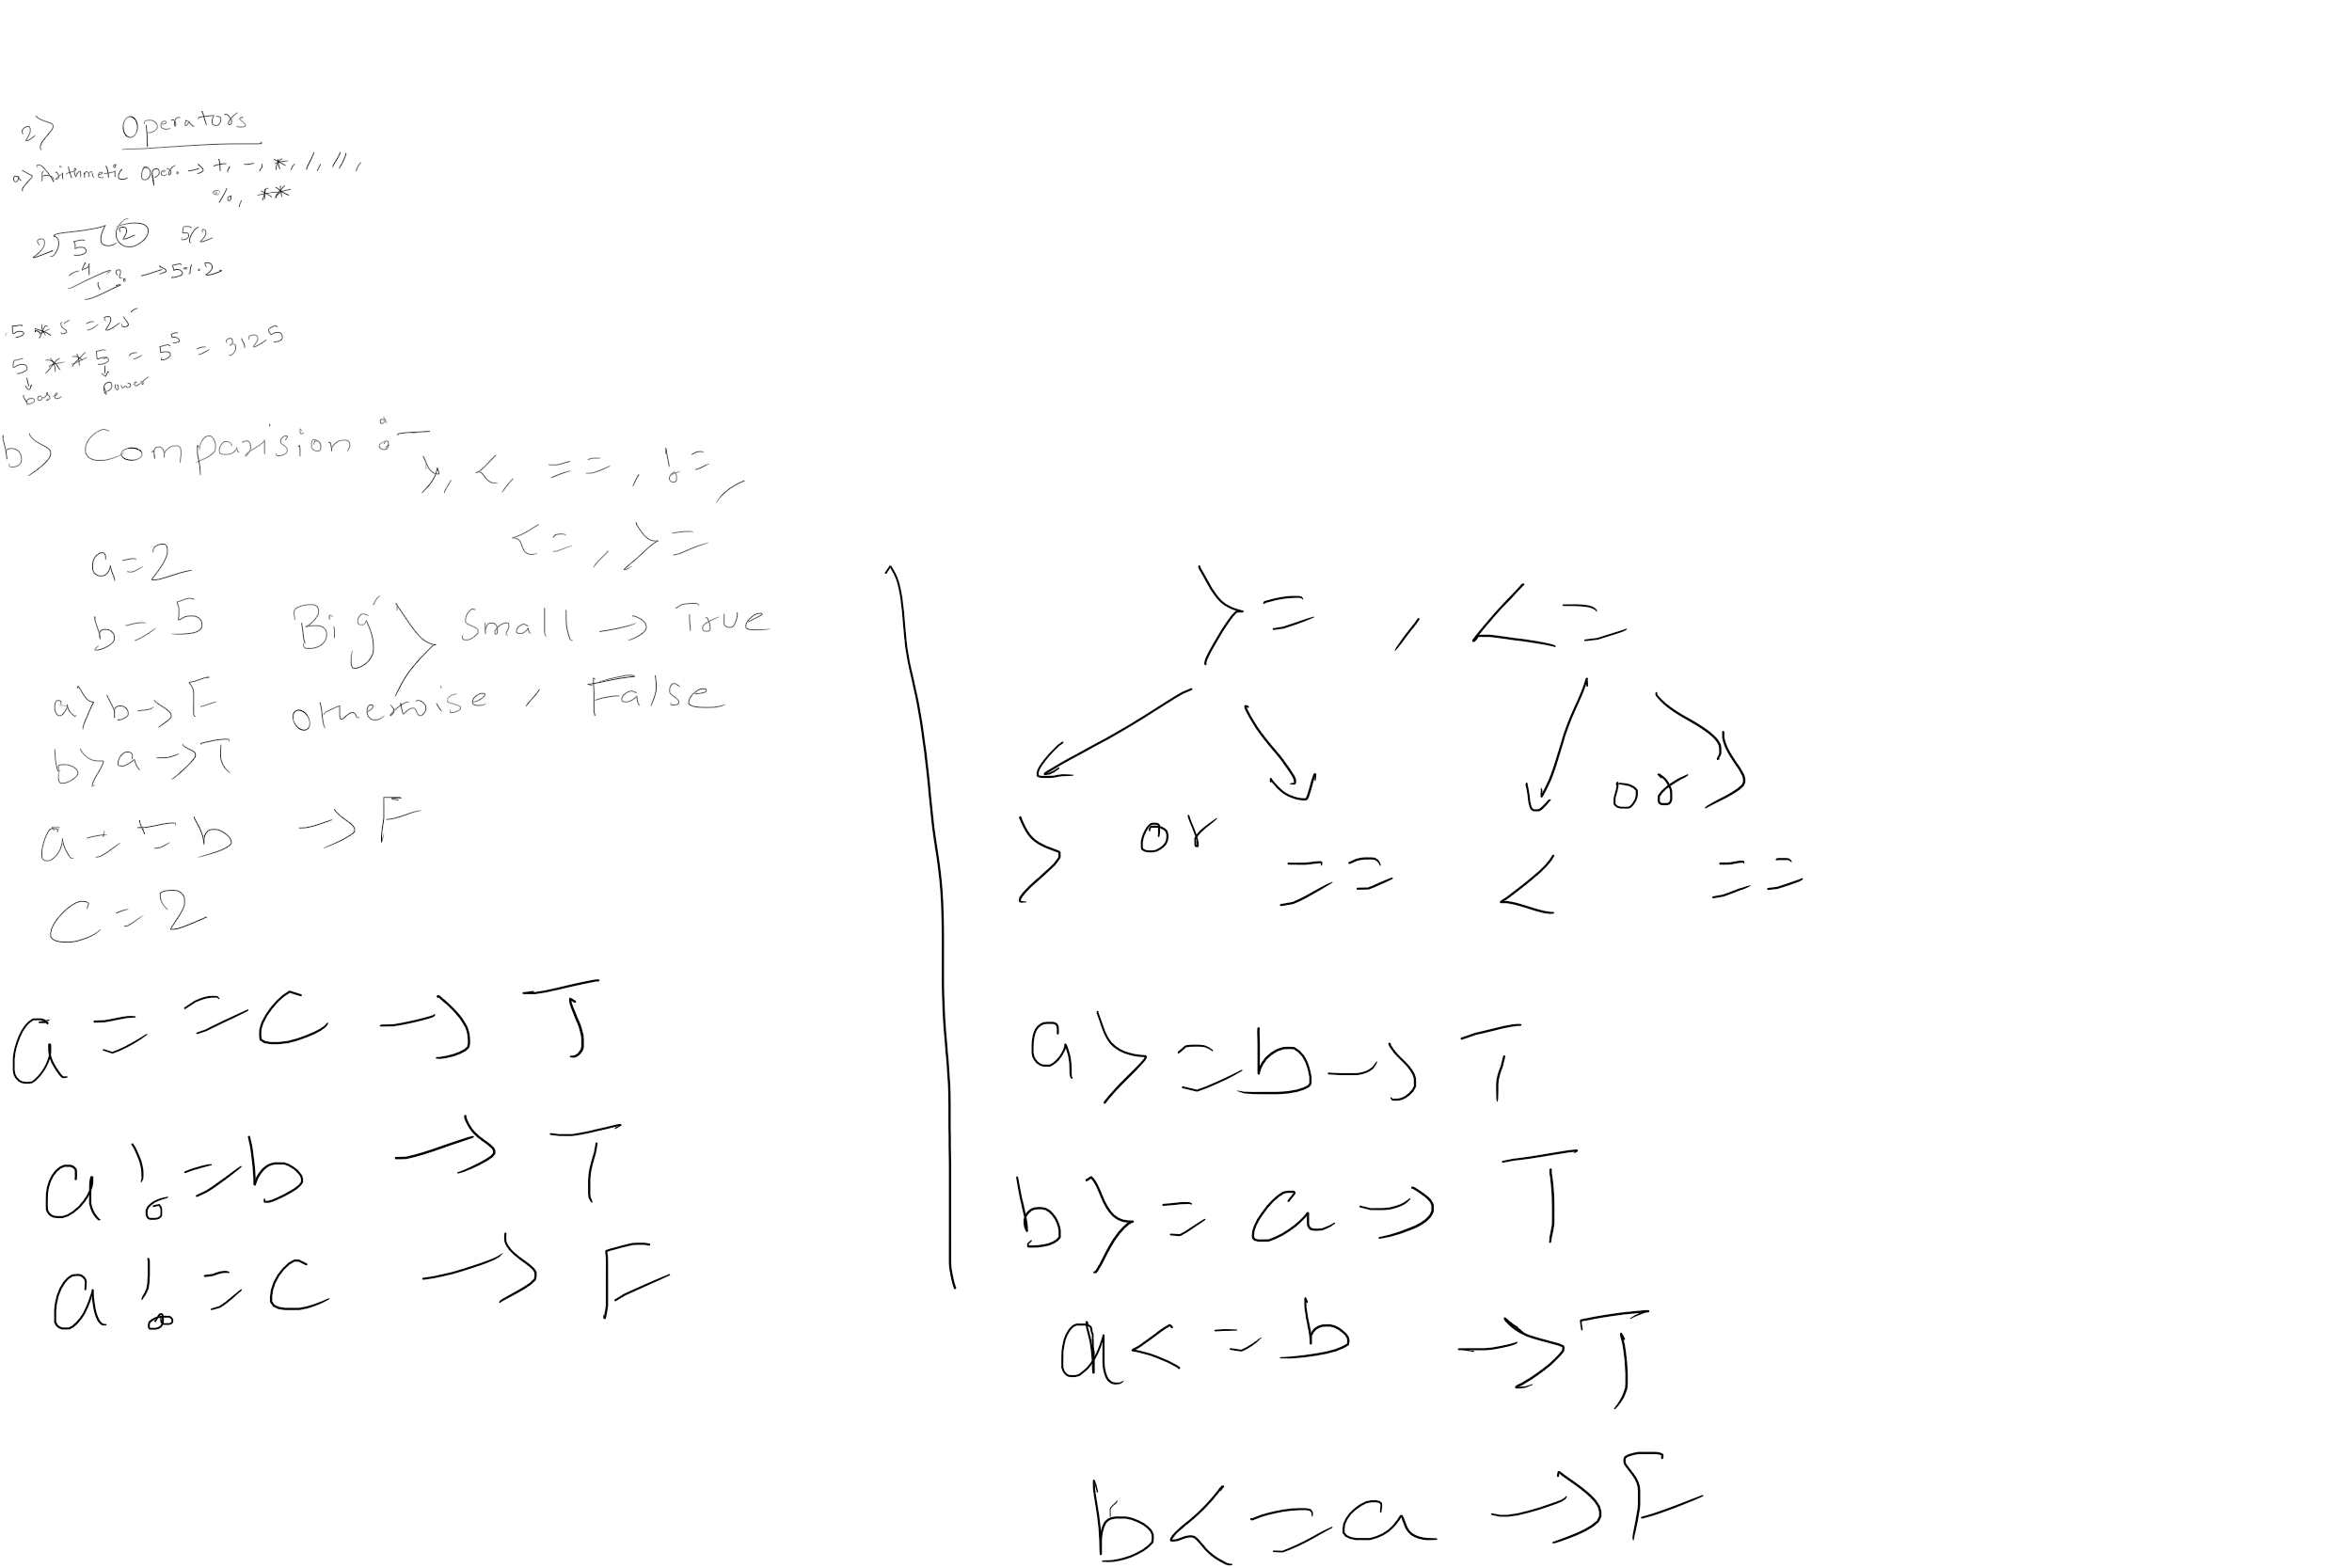 2> Operators
a> Arithmetic Oper. → +, -, *, /, //,
%, **
2)5(2 5/2
-4
1 → 5%2
5 * 5 = 25
5 * * 5 = 5^5 = 3125
↓ ↓
base power
b> Comparision :-
>, <, ==, !=,
<=, >=
a = 2
b = 5 Big > Small → True
a > b → F otherwise, False
b > a → T
a == b → F
C = 2
a == C → T
a != b → T
a != C → F
>= , <=
> or == < or ==
a >= b → T
b >= a → T
a <= b → T
b <= a → F